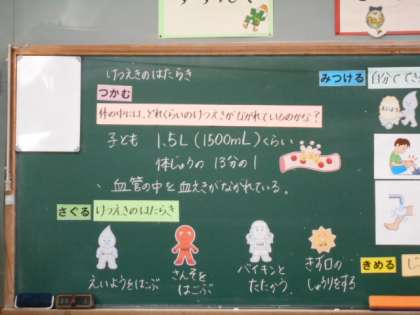 けつえきのはたらき
つかむ
体の中には、どれくらいのけつえきがながれているのかな?
子ども 1.5L(1500mL)くらい
体じゅうの 13分の1
、血管の中を血えきがながれている。
さぐる けつえきのはたらき
えいようをはこぶ
さんそを
はこぶ
バイキンと
たたかう。
きず口の
しゅうりをする
みつける 自分でで
きめる